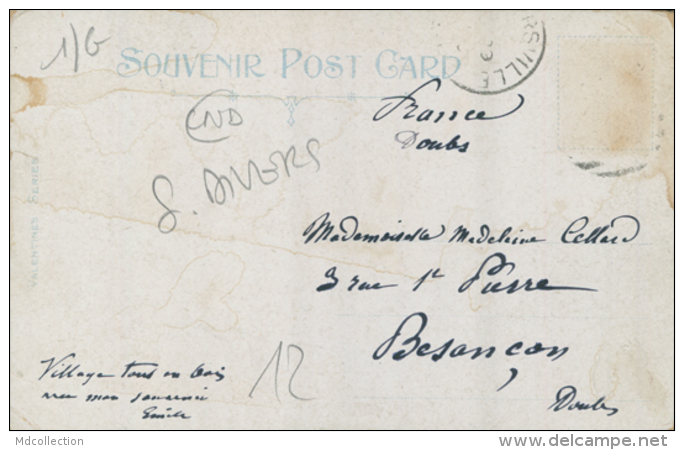 1/G
SOUVENIR POST CARD
France
Doubs
CND
S. DIVERS
VALENTINES SERIES
Mademoiselle Madeleine Cellard
3 rue St Pierre
Besançon
Doubs
Village tout en bois
avec mon souvenir
Emile
12
Mdcollection
www.delcampe.net